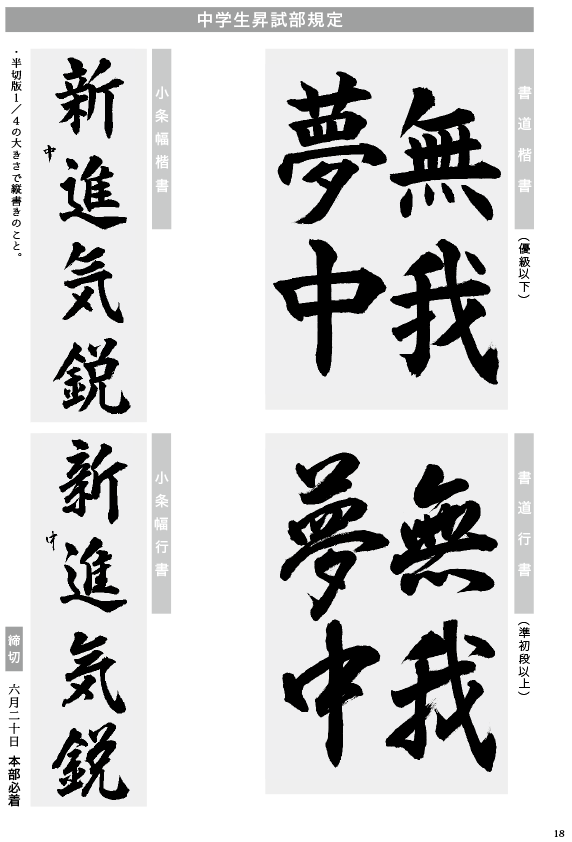 中学生昇試部規定
書道楷書
（優級以下）
無我
夢中
小条幅楷書
新進気鋭
中
・半切版1／4の大きさで縦書きのこと。
書道行書
（準初段以上）
無我
夢中
小条幅行書
新進気鋭
中
締切
六月二十日 本部必着
18